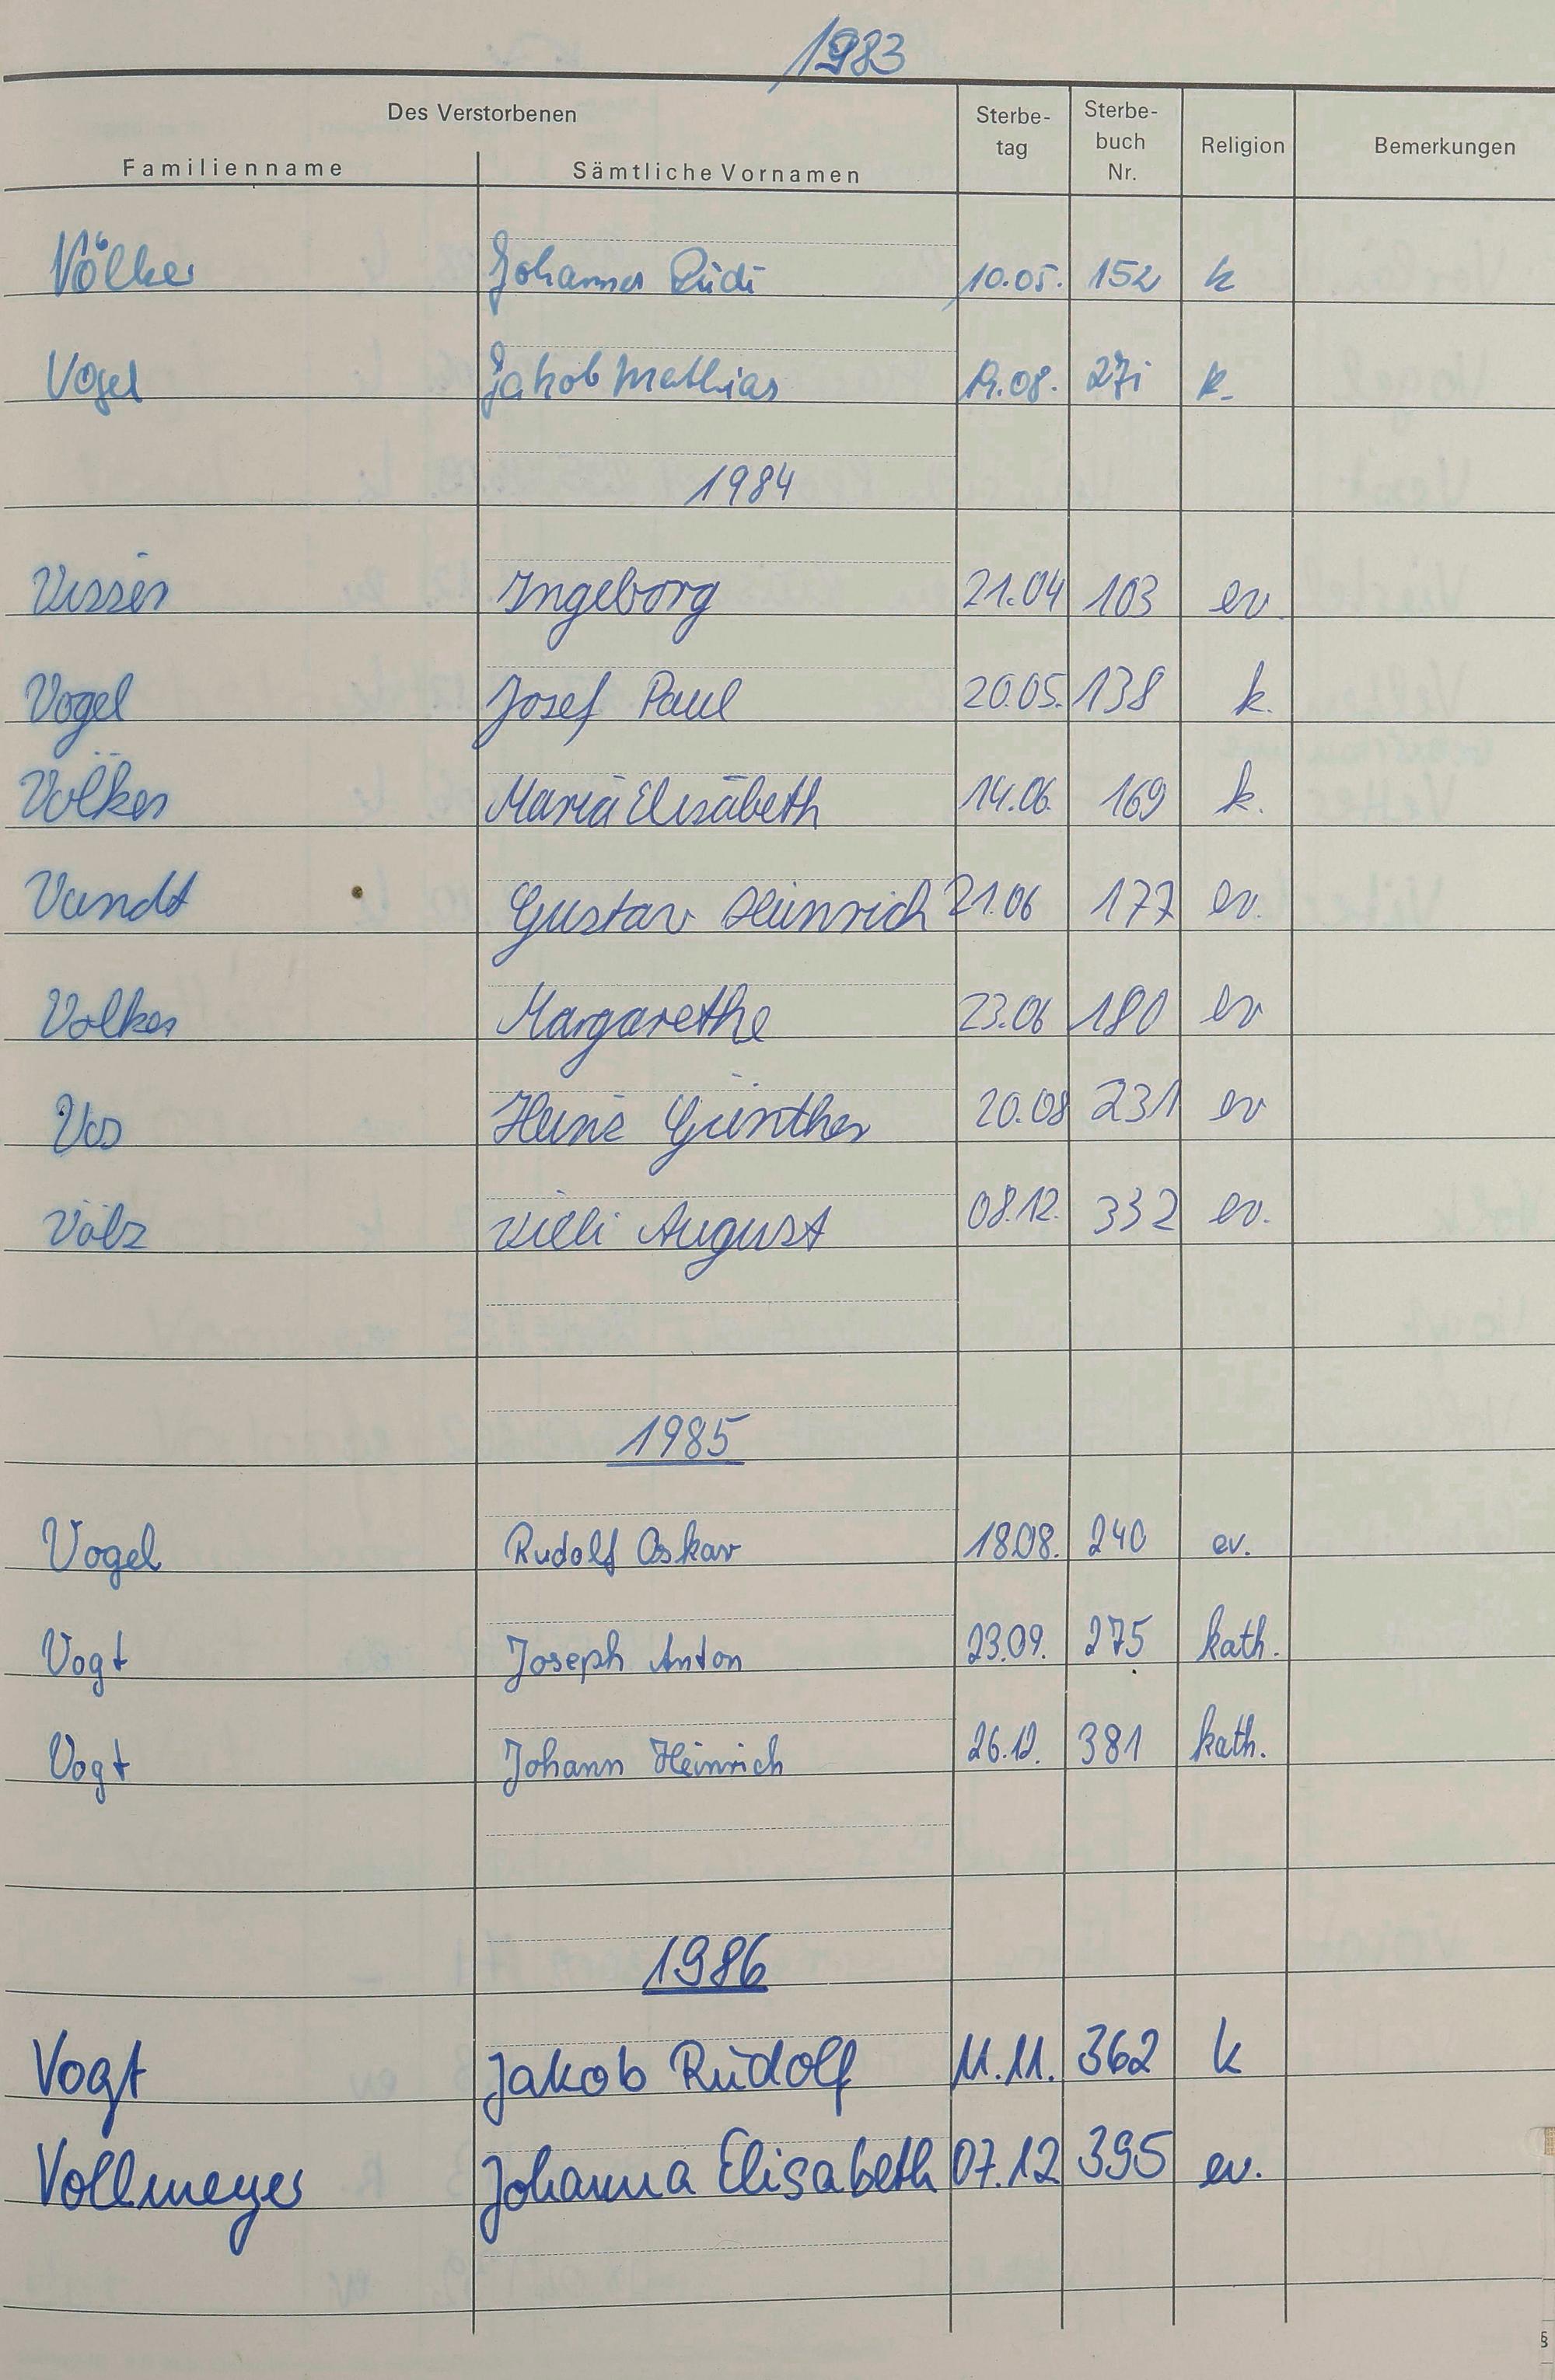 1983
Des Verstorbenen
Familienname Sämtliche Vornamen Sterbe- tag Sterbe- buch Nr. Religion Bemerkungen
Völker Johannes Rudi 10.05. 152 k
Vogel Jakob Mathias 19.08. 271 k.
1984
Visser Ingeborg 21.04 103 ev.
Vogel Josef Paul 20.05. 138 k.
Völker Maria Elisabeth 14.06. 169 k.
Vandt Gustav Heinrich 21.06 177 ev.
Volker Margarethe 23.06 180 ev
Vos Heinz Günther 20.08 231 ev
Völz Willi August 08.12. 332 ev.
1985
Vogel Rudolf Oskar 18.08. 240 ev.
Vogt Joseph Anton 23.09. 275 kath.
Vogt Johann Heinrich 26.12. 381 kath.
1986
Vogt Jakob Rudolf 11.11. 362 k
Vollmeyer Johanna Elisabeth 07.12 395 ev.